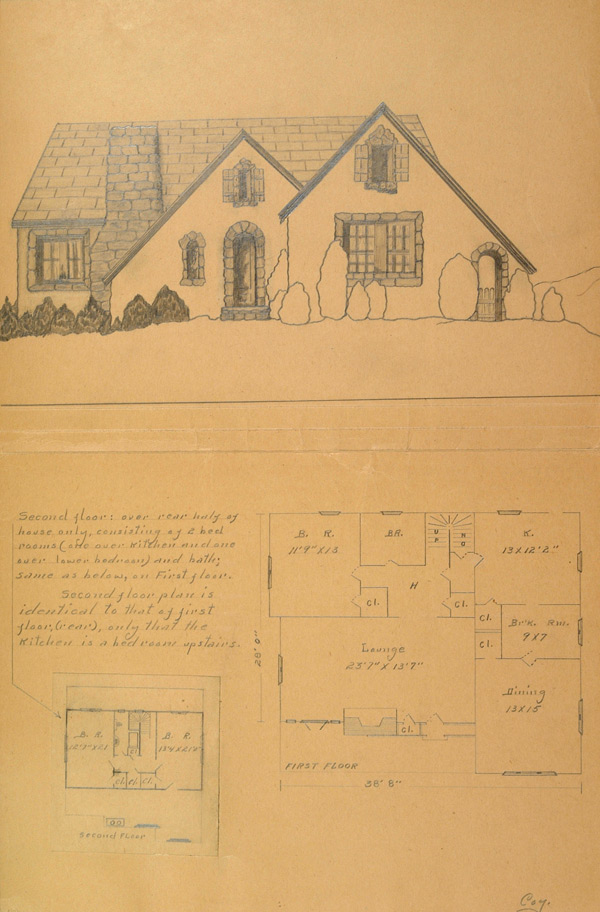 Second floor: over rear half of
house only, consisting of 2 bed
rooms (one over kitchen and one
over lower bedroom) and bath;
same as below, on First floor.
Second floor plan is
identical to that of first
floor, (rear), only that the
kitchen is a bedroom upstairs.
B. R.
11'9" X 13
BR.
UP
K.
13X12'2"
H
Cl.
Cl.
Cl.
Cl.
Brk. Rm.
9X7
Lounge
23'7" X 13'7"
Dining
13X15
Cl.
28' 0"
FIRST FLOOR
38' 8"
B. R.
B. R.
Cl.
Cl.
Cl.
Second Floor
Coy.